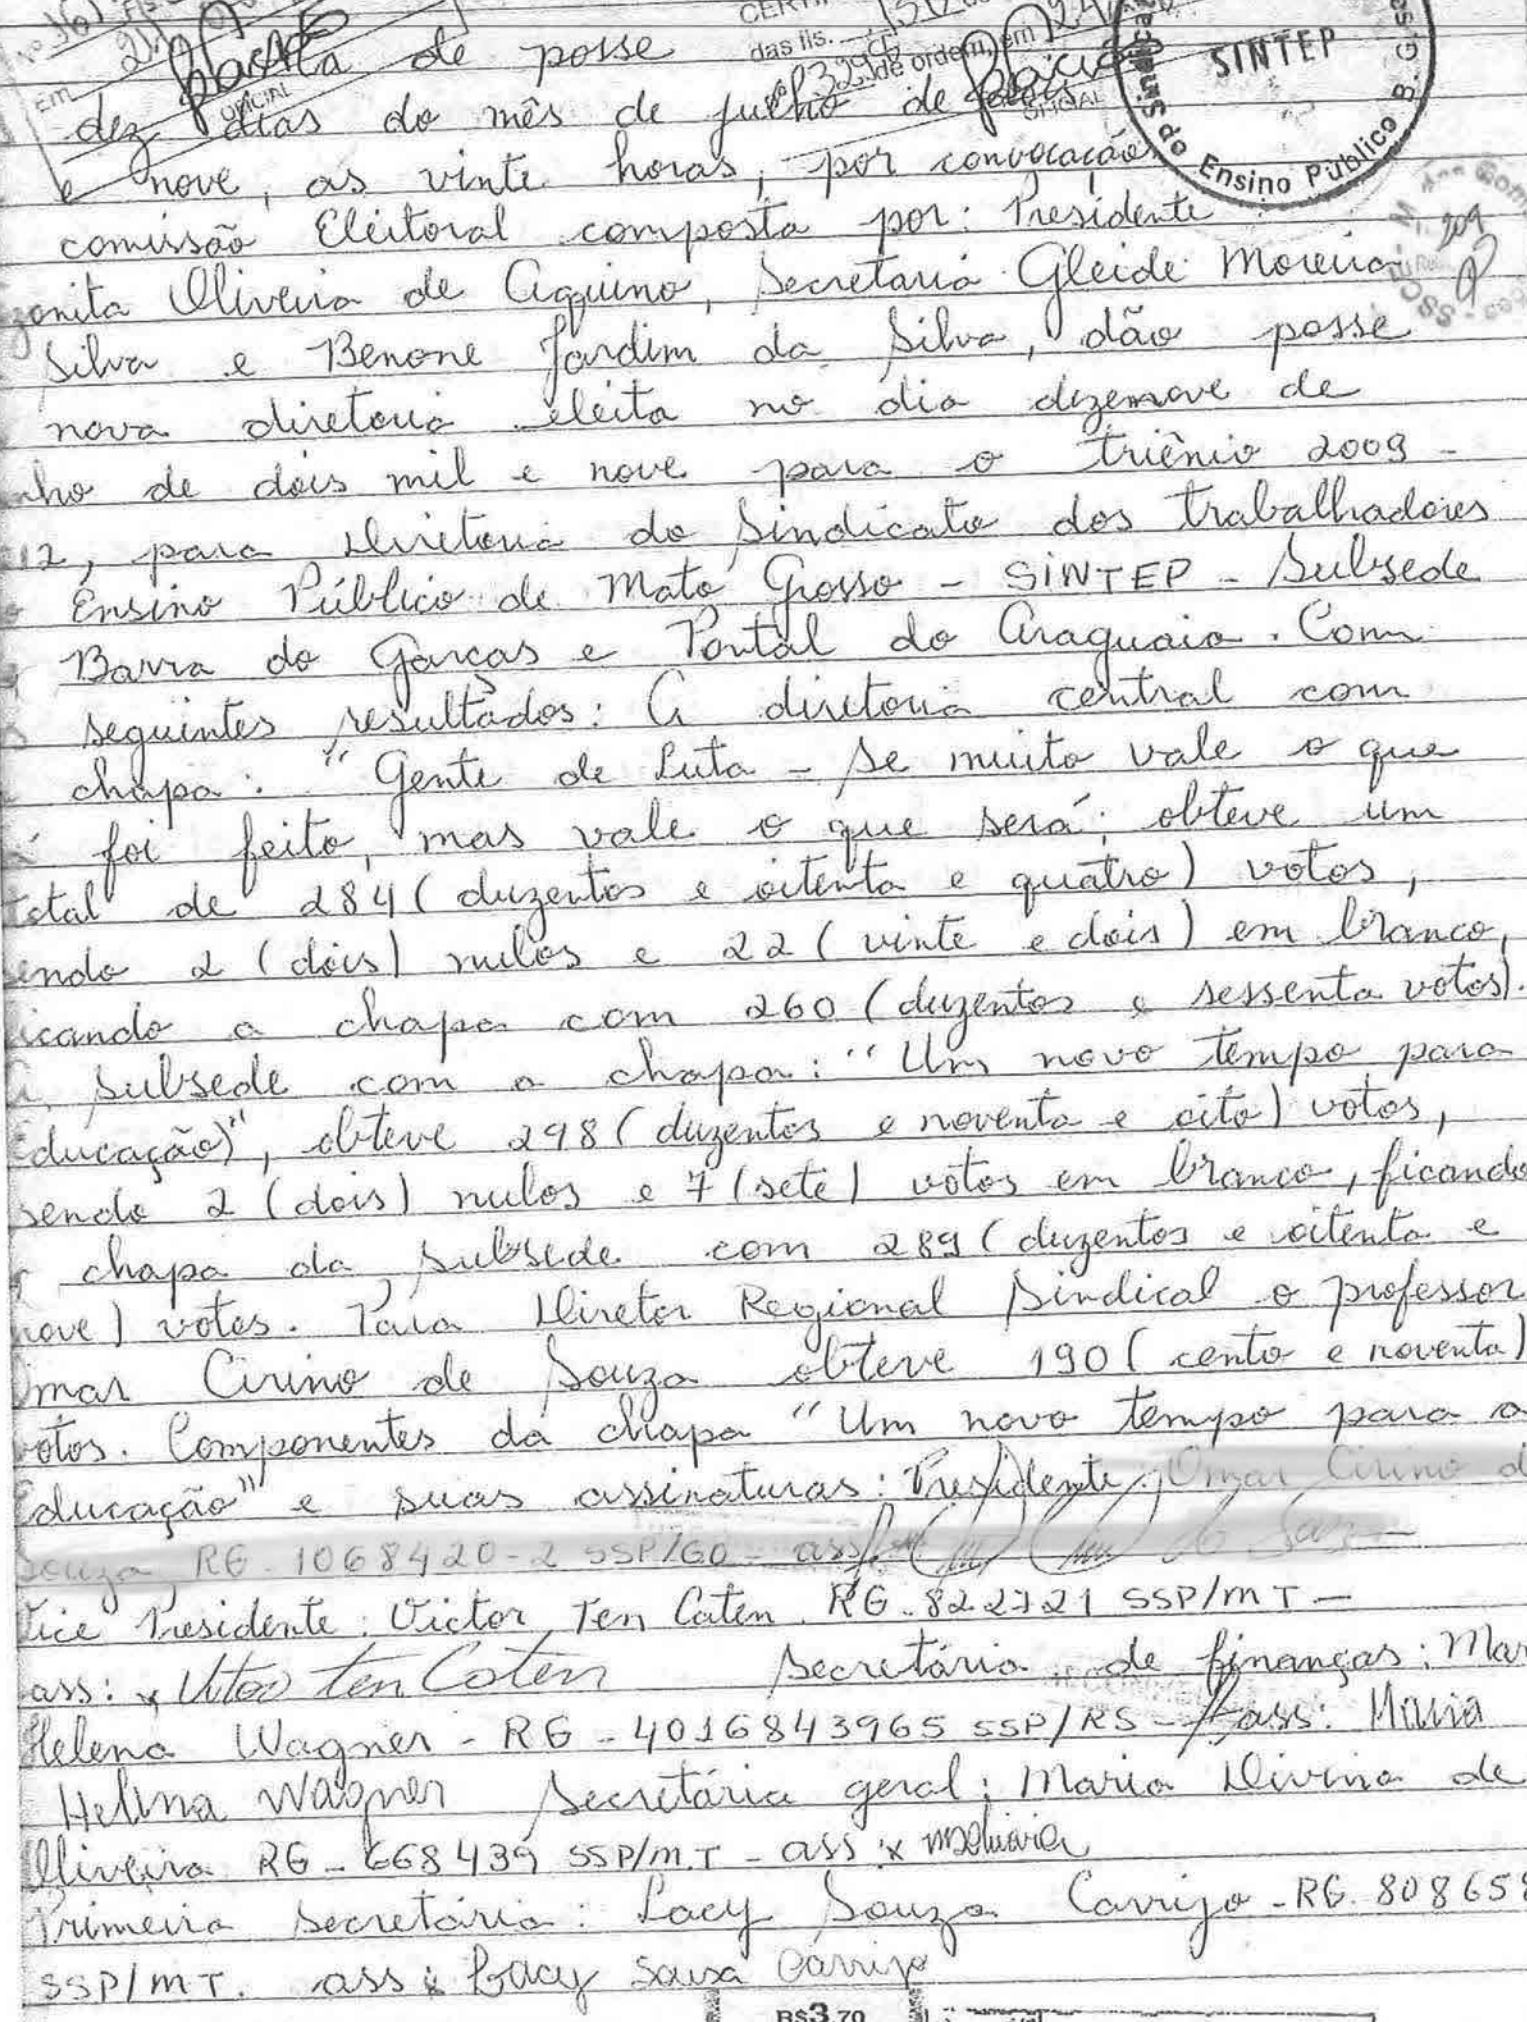 de posse
dez dias do mês de julho de dois
e nove, as vinte horas, por convocação
comissão Eleitoral composta por: Presidente
zonita Oliveira de Aquino, Secretaria Gleide Moreira
Silva e Benone Jardim da Silva, dão posse
nova diretoria eleita no dia dezenove de
nho de dois mil e nove para o triênio 2009 -
12, para Diretoria do Sindicato dos Trabalhadores
Ensino Público de Mato Grosso - SINTEP - Subsede
Barra do Garças e Pontal do Araguaia. Com
seguintes resultados: A diretoria central com
chapa: "Gente de Luta - Se muito vale o que
já foi feito, mas vale o que será; obteve um
total de 284 (duzentos e oitenta e quatro) votos,
sendo 2 (dois) nulos e 22 (vinte e dois) em branco,
icando a chapa com 260 (duzentos e sessenta votos).
A subsede com a chapa: "Um novo tempo para
Educação)", obteve 298 (duzentos e noventa e oito) votos,
sendo 2 (dois) nulos e 7 (sete) votos em branco, ficando
chapa da subsede com 289 (duzentos e oitenta e
nove) votos. Para Diretor Regional Sindical o professor
Omar Cirino de Souza obteve 190 (cento e noventa)
votos. Componentes da chapa "Um novo tempo para a
Educação" e suas assinaturas: Presidente: Omar Cirino d
Souza RG. 1068420-2 SSP/GO - ass:
Vice Presidente: Victor Ten Caten RG. 822721 SSP/MT -
ass: x Vitor ten Caten Secretária de finanças: Mar
Helena Wagner - RG - 4016843965 SSP/RS - ass: Maria
Helena Wagner Secretária geral: Maria Divina de
Oliveira RG - 668439 SSP/M.T - ass: x
Primeira secretária: Lacy Souza Carrijo - RG. 808658
SSP/MT. ass: Lacy Sousa Carrijo
SINTEP
do Ensino Público B. G.
das fls.
de ordem, em
OFICIAL
OFICIAL
Em
R$3,70